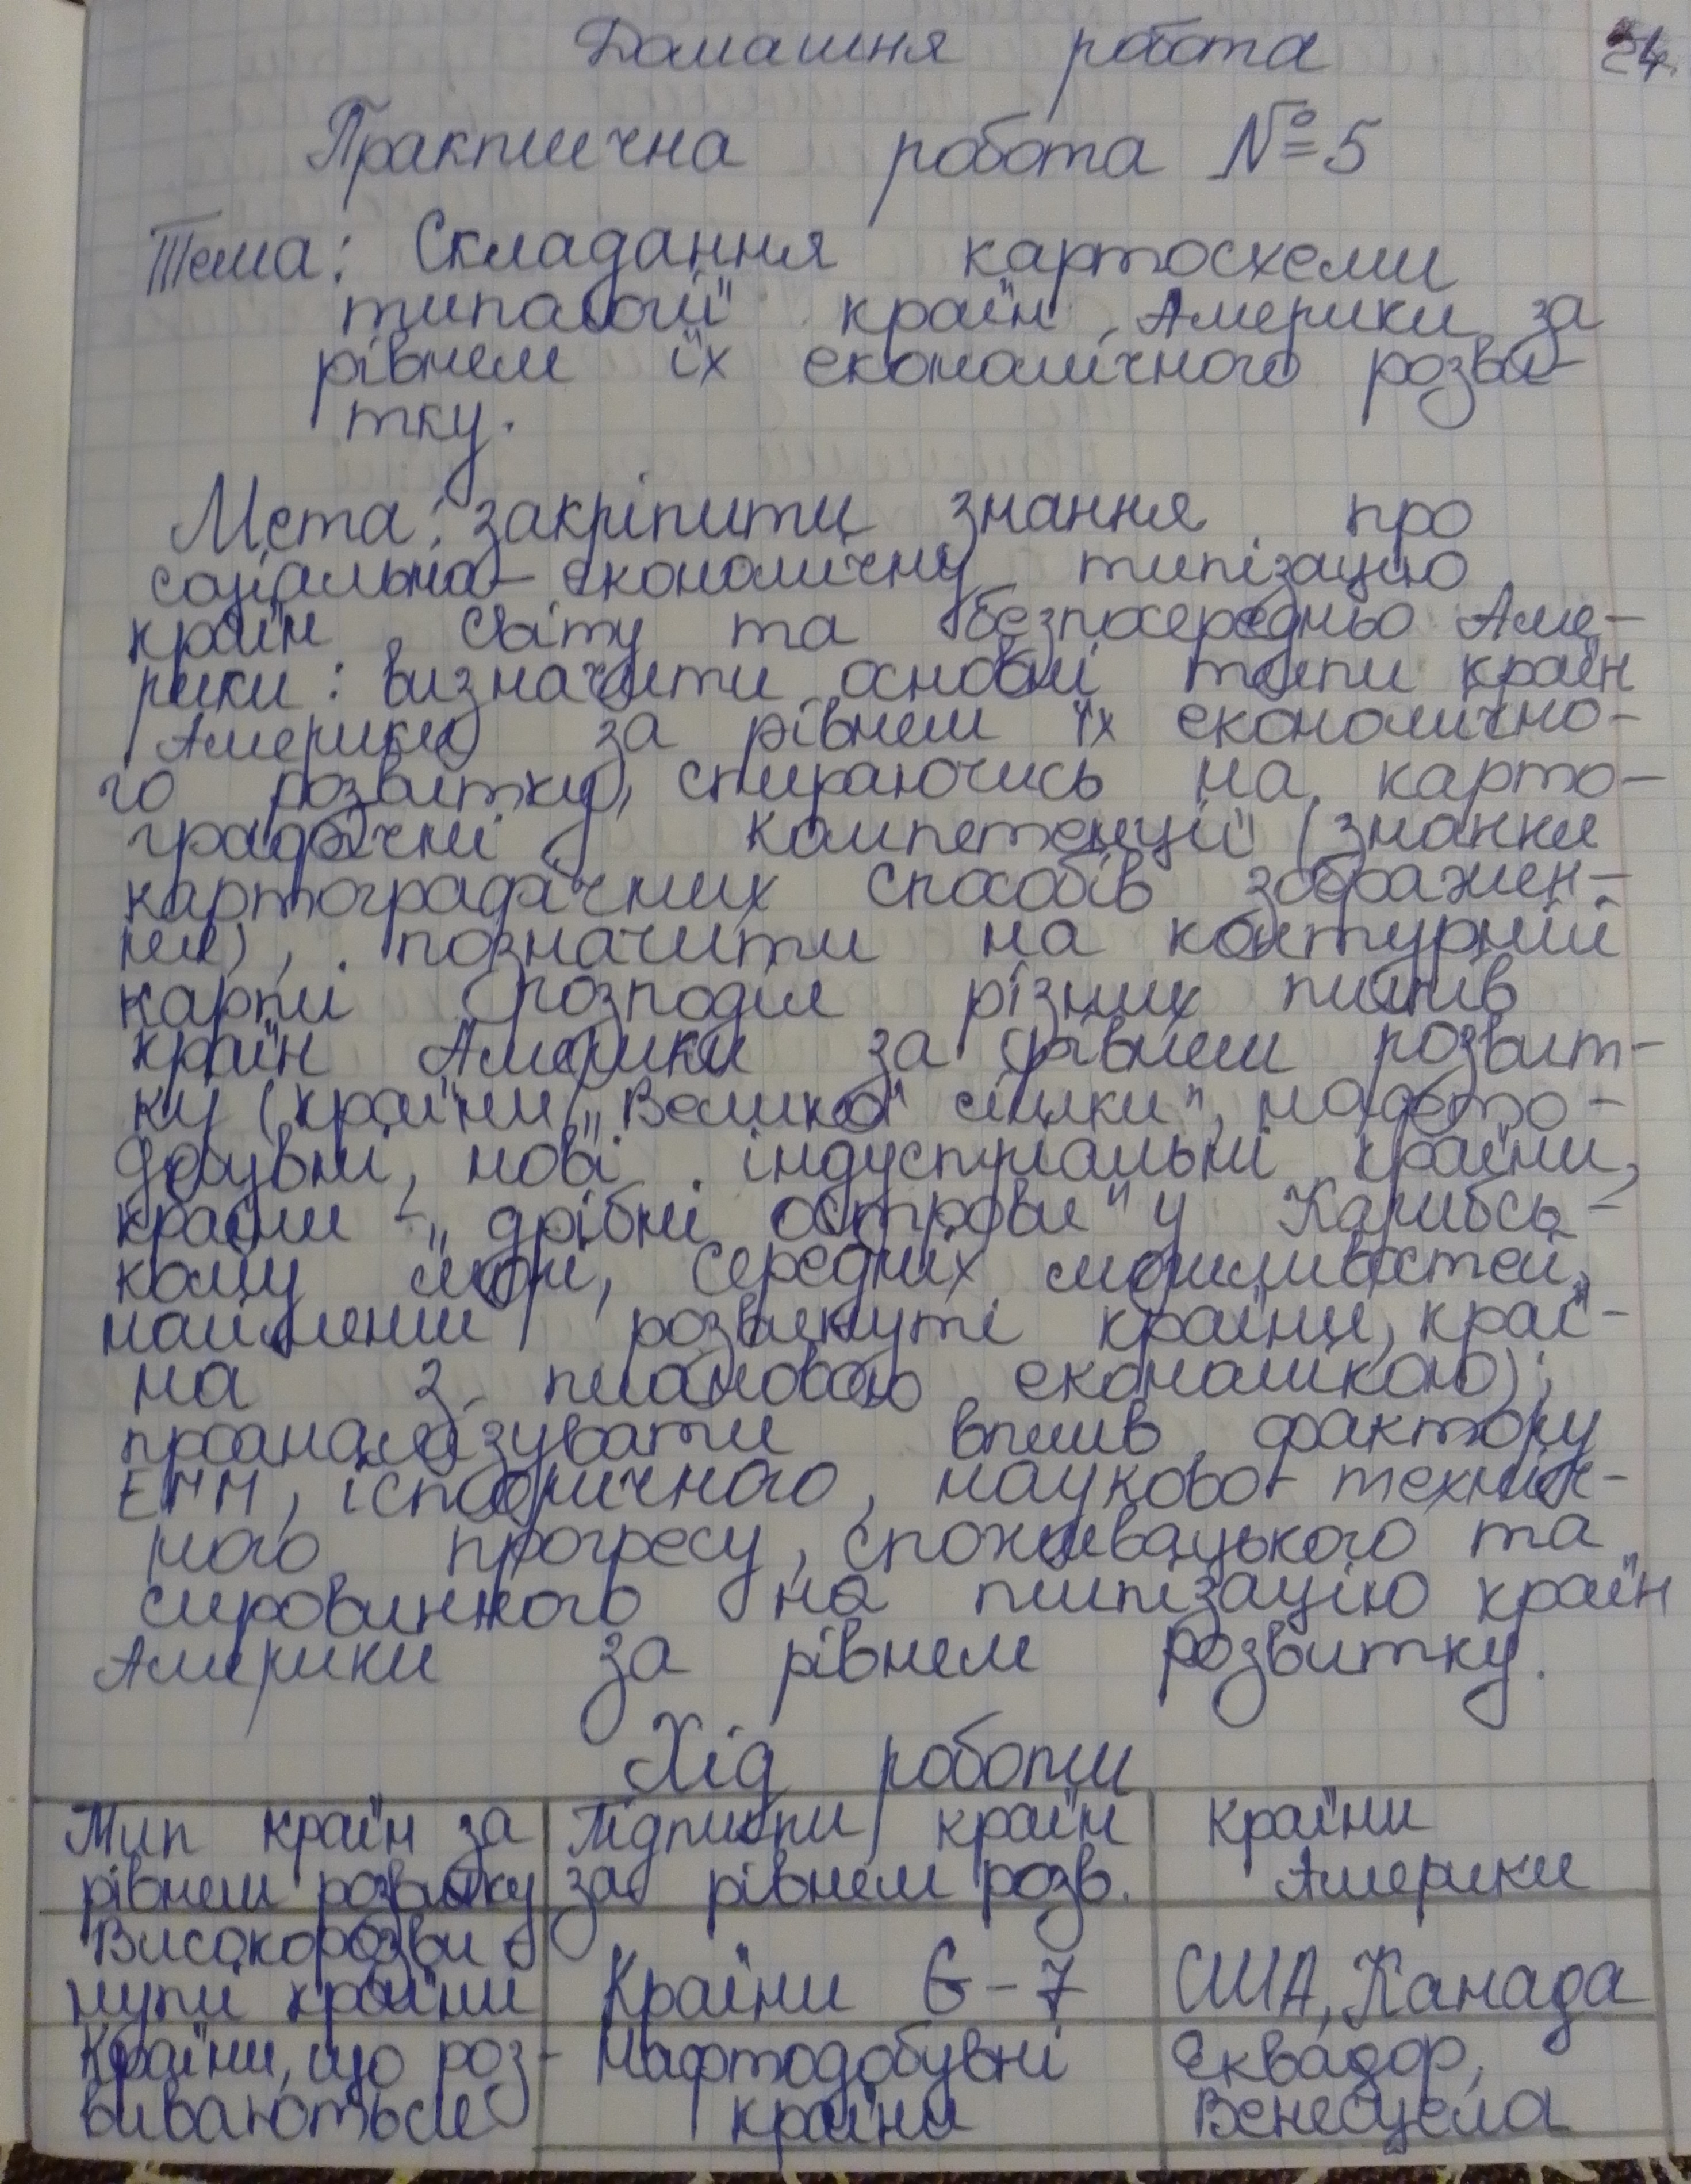 Домашня робота
Практична робота №5
Тема: Складання картосхеми
типології країн Америки за
рівнем їх економічного розви-
тку.
Мета: закріпити знання про
соціально-економічну типізацію
країн світу та безпосередньо Аме-
рики: визначити основні типи країн
Америки за рівнем їх економічно-
го розвитку, спираючись на карто-
графічні компетенції (знання
картографічних способів зображен-
ня), позначити на контурній
карті розподіл різних типів
країн Америки за рівнем розвит-
ку (країни „Великої сімки", нафто-
добувні, нові індустріальні країни,
країни - „дрібні острови" у Карибсь-
кому морі, середніх можливостей,
найменш розвинуті країни, краї-
на з плановою економікою);
проаналізувати вплив фактору
ЕГП, історичного, науково-техніч-
ного прогресу, споживацького та
сировинного на типізацію країн
Америки за рівнем розвитку.
Хід роботи
Тип країн за Підтипи країн Країни
рівнем розвитку за рівнем розв. Америки
Високорозви-
нуті країни Країни G-7 США, Канада
Країни, що роз- Нафтодобувні Еквадор,
виваються країни Венесуела